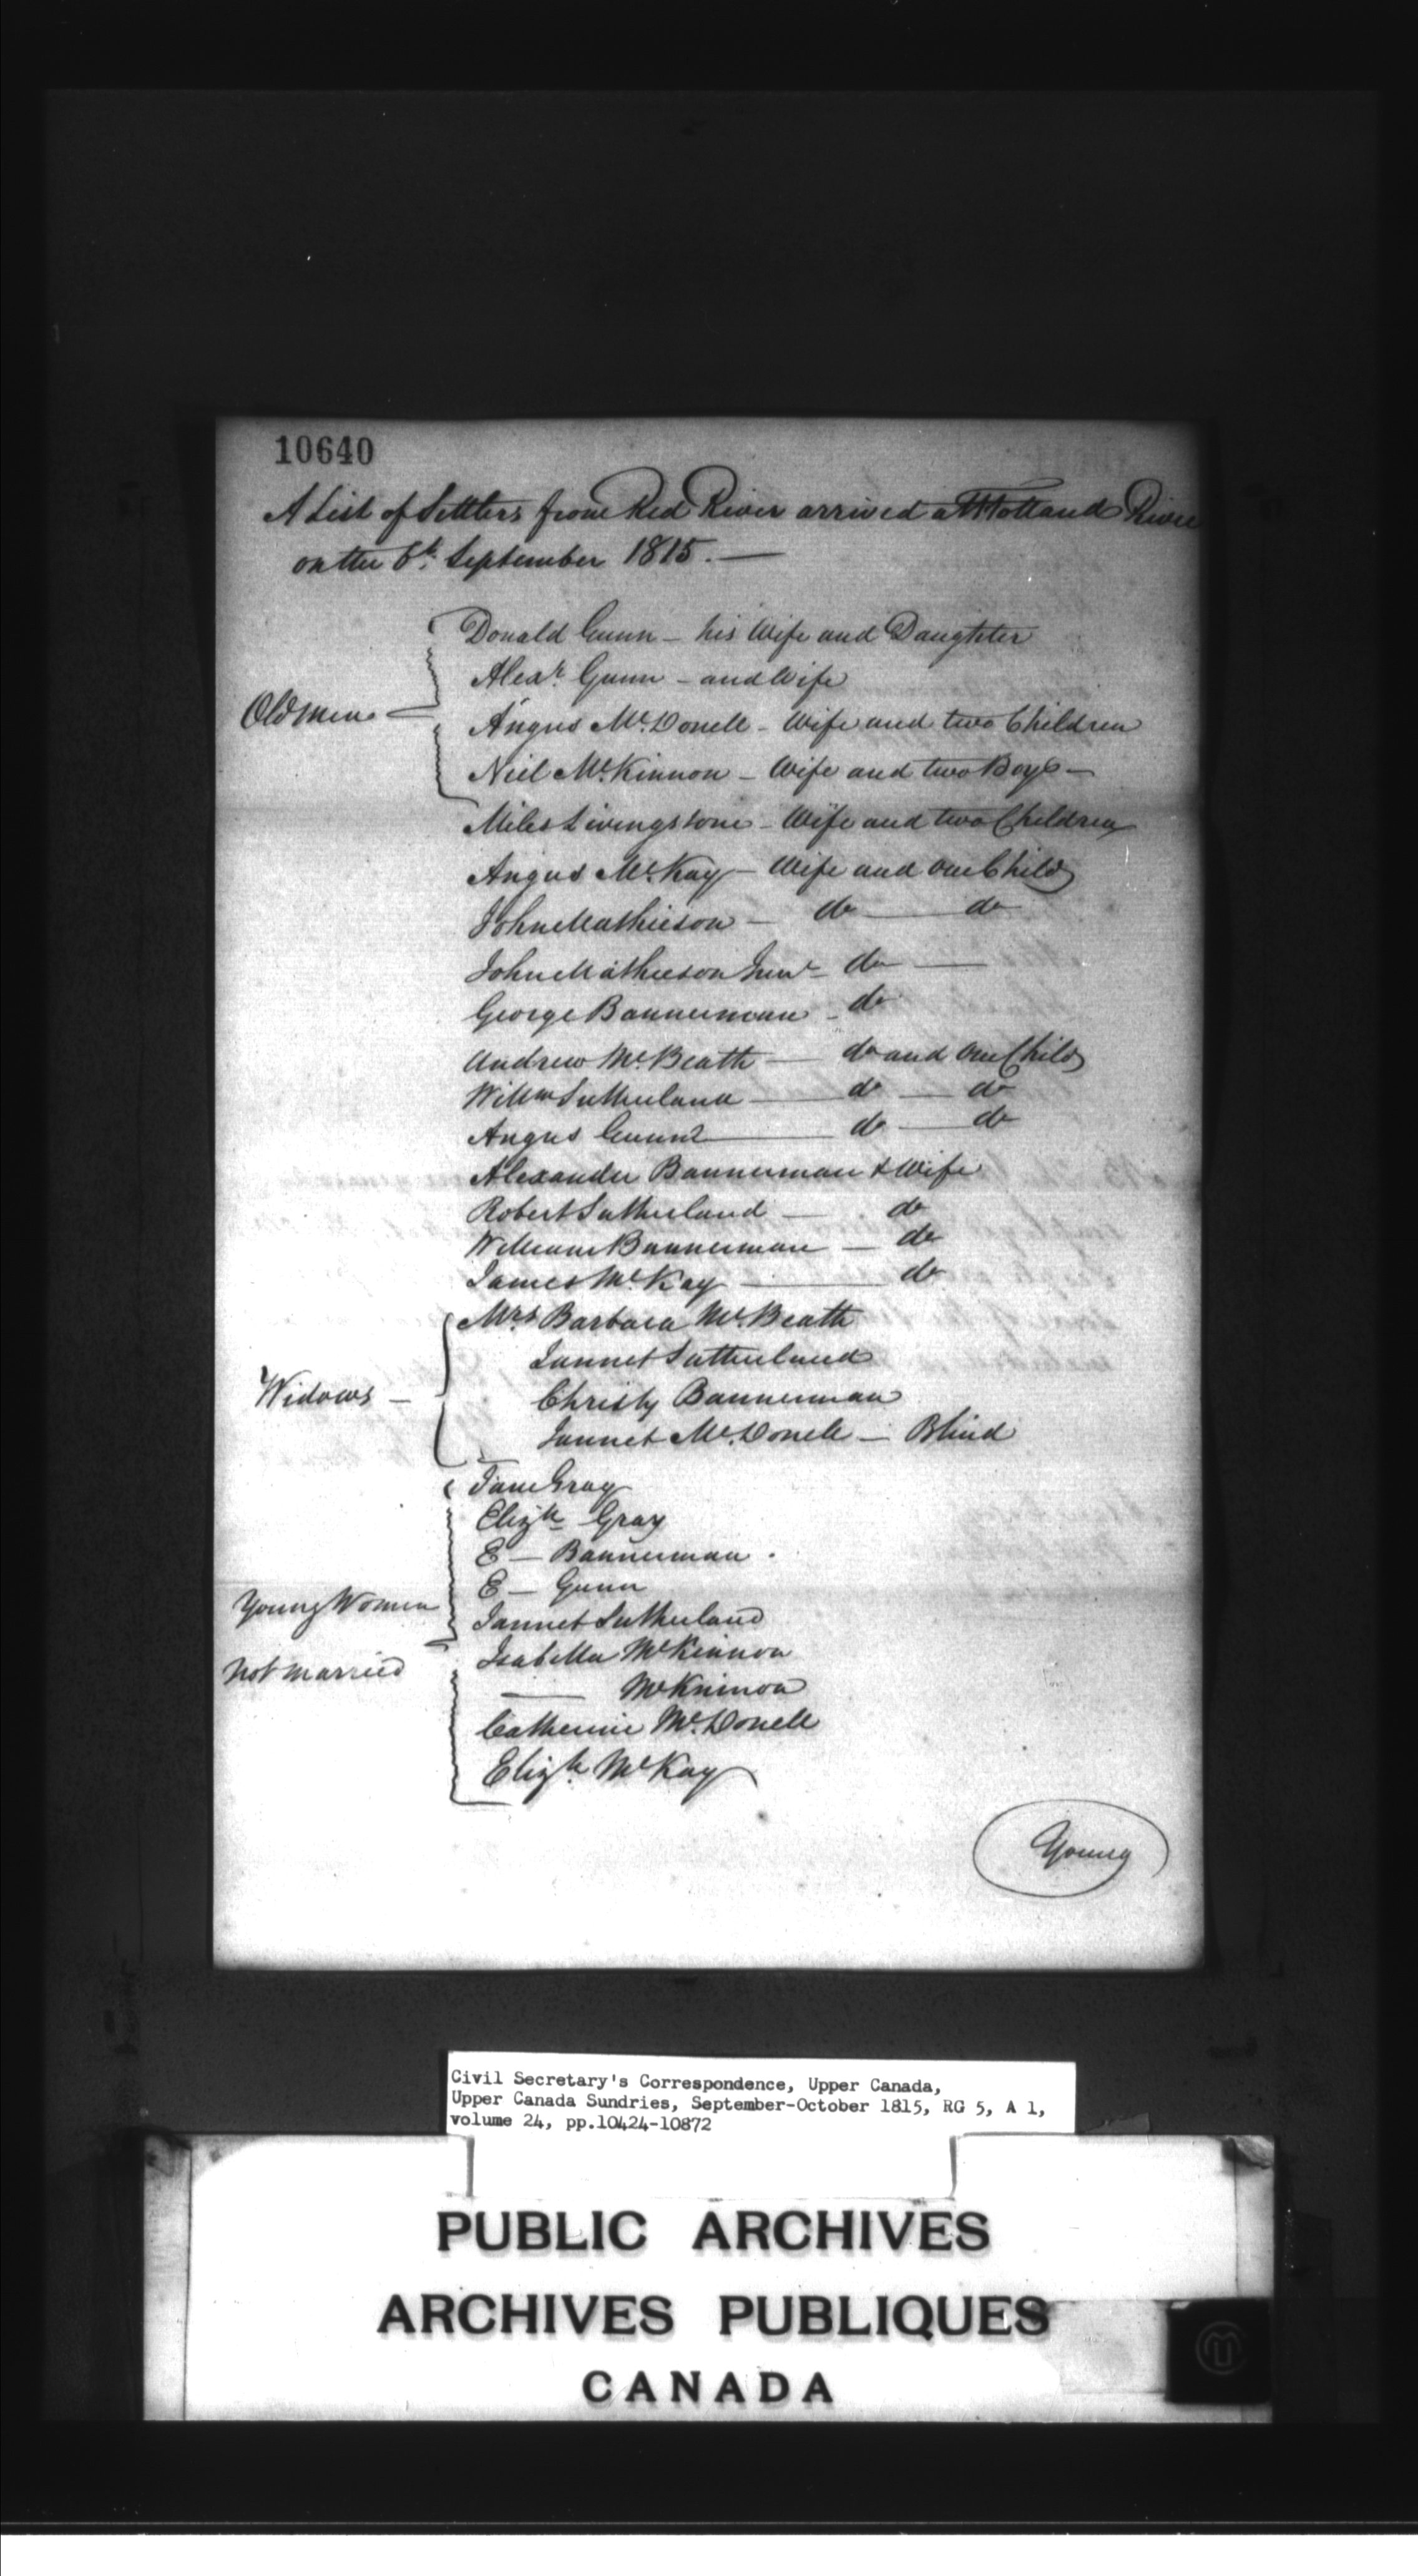 10640
A List of Settlers from Red River arrived at Holland River
on the 6th. September 1815. —
Donald Gunn — his Wife and Daughter
Alexr. Gunn — and Wife
Old men —
Angus McDonell — Wife and two Children
Niel McKinnon — Wife and two Boys —
Miles Livingstone — Wife and two Children
Angus McKay — Wife and one Child
John Mathieson — do — do
John Mathieson Junr — do —
George Bannerman — do
Andrew McBeath — do and one Child
Willm Sutherland — do — do
Angus Gunn — do — do
Alexander Bannerman & Wife
Robert Sutherland — do
William Bannerman — do
James McKay — do
Mrs Barbara McBeath
Jannet Sutherland
Widows —
Christy Bannerman
Jannet McDonell — Blind
Jane Gray
Elizth Gray
E — Bannerman .
E — Gunn
Young Women
Jannet Sutherland
Isabella McKinnon
not married
— McKninon
Catherine McDonell
Elizth McKay
Young
Civil Secretary's Correspondence, Upper Canada,
Upper Canada Sundries, September-October 1815, RG 5, A 1,
volume 24, pp.10424-10872
PUBLIC ARCHIVES
ARCHIVES PUBLIQUES
CANADA